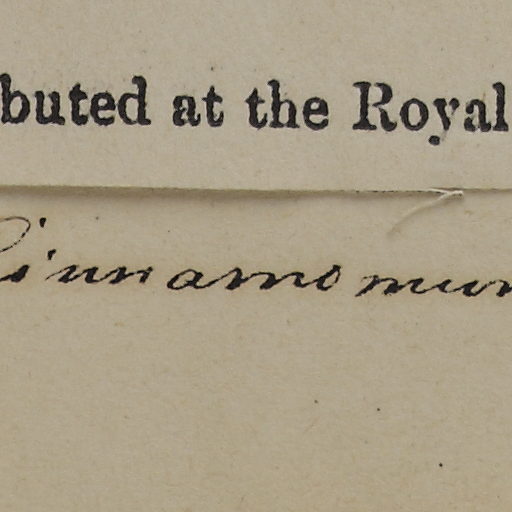 buted at the Royal
Cinnamomum